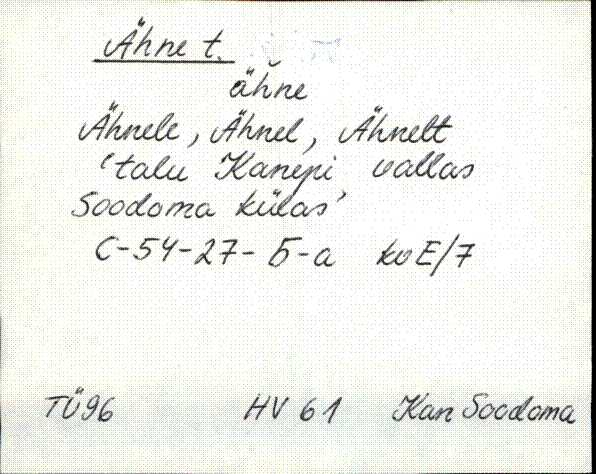 Ähne t.
ähne
Ähnele, Ähnel, Ähnelt
'talu Kanepi vallas
Soodoma külas'
C-54-27-Б-а kv E/7
TÜ96 HV 61 Kan Soodoma